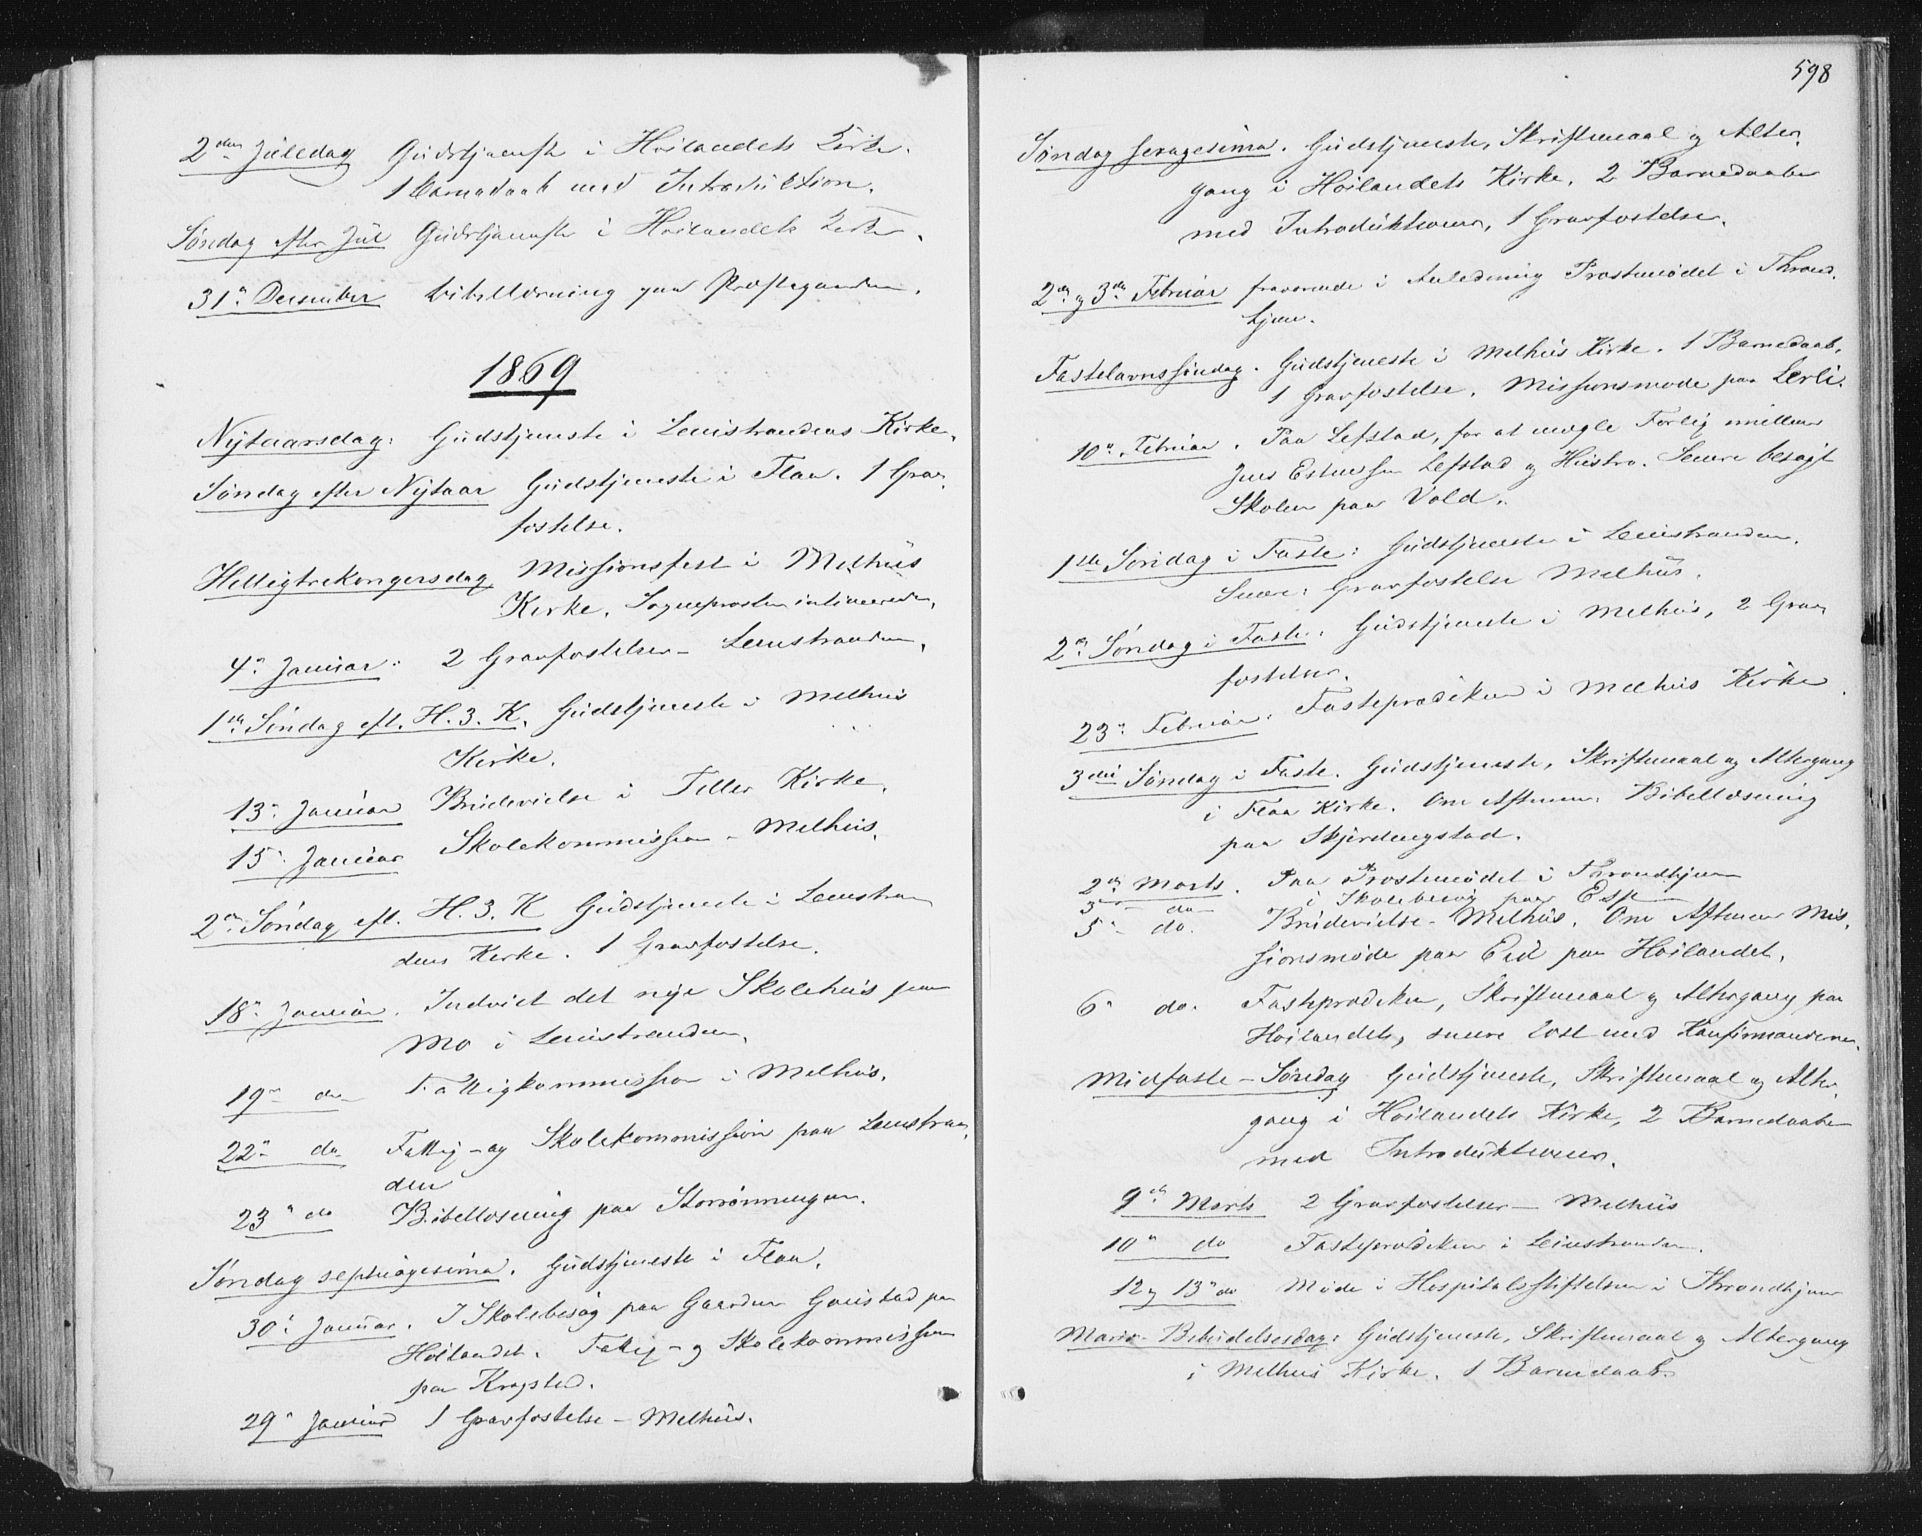 2den Juledag Gudstjeneste i Høilandets Kirke.
1 Barnedaab med Introduktion.
Søndag efter Jul Gudstjeneste i Høilandets Kirke.
31te December Bibellæsning paa Præstegaarden.
1869
Nytaarsdag: Gudstjeneste i Leinstrandens Kirke.
Søndag efter Nytaar Gudstjeneste i Flaa. 1 Grav-
fæstelse.
Helligtrekongersdag Missionsfest i Melhus
Kirke. Sognepræsten intimerede.
4de Januar: 2 Gravfæstelser - Leinstranden.
1ste Søndag eft. H. 3. K. Gudstjeneste i Melhus
Kirke.
13de Januar Brudevielse i Tiller Kirke.
15de Januar Skolekommission - Melhus.
2den Søndag eft. H. 3. K Gudstjeneste i Leinstran
dens Kirke. 1 Gravfæstelse.
18de Januar. Indviet det nye Skolehus paa
Mo i Leinstranden.
19de do Fattigkommission i Melhus.
22de do Fattig- og Skolekommission paa Leinstran-
den
23de do Bibellæsning paa Storrønningen.
Søndag septuagesima. Gudstjeneste i Flaa.
30te Januar. I Skolebesøg paa Gaarden Gaustad paa
Høilandet. Fattig- og Skolekommission
paa Krogstad.
29de Januar 1 Gravfæstelse - Melhus.
598
Søndag sexagesima. Gudstjeneste, Skriftemaal og Alter-
gang i Høilandets Kirke. 2 Barnedaabe
med Introduktioner, 1 Gravfæstelse.
2den og 3die Februar fraværende i Anledning Prostemødet i Thrond-
hjem.
Fastelavnssøndag. Gudstjeneste i Melhus Kirke. 1 Barnedaab,
1 Gravfæstelse. Missionsmøde paa Lerli.
10de Februar. Paa Lefstad, for at mægle Forlig imellem
Jens Estensen Lefstad og Hustro. Senere besøgt
Skolen paa Vold.
1ste Søndag i Faste: Gudstjeneste i Leinstranden.
Senere: Gravfæstelse Melhus.
2den Søndag i Faste: Gudstjeneste i Melhus, 2 Grav
fæstelser.
23de Februar: Fasteprædiken i Melhus Kirke.
3die Søndag i Faste. Gudstjeneste, Skriftemaal og Altergang
i Flaa Kirke. Om Aftenen: Bibellæsning
paa Skjerdingstad.
2den Marts. Paa Prostemødet i Throndhjem
3die do i Skolebesøg paa Esp
5te do. Brudevielse - Melhus. Om Aftenen Mis-
sionsmøde paa Eid paa Høilandet.
6te do. Fasteprædiken, Skriftemaal og Altergang paa
Høilandet, senere læst med Konfirmanderne.
Midfaste-Søndag Gudstjeneste, Skriftemaal og Alter-
gang i Høilandets Kirke, 2 Barnedaabe
med Introduktioner.
9de Marts 2 Gravfæstelser - Melhus
10de do Fasteprædiken i Leinstranden.
12 og 13de do Møde i Hospitalsstiftelsen i Throndhjem
Mariæ-Bebudelsesdag: Gudstjeneste, Skriftemaal og Altergang
i Melhus Kirke. 1 Barnedaab.